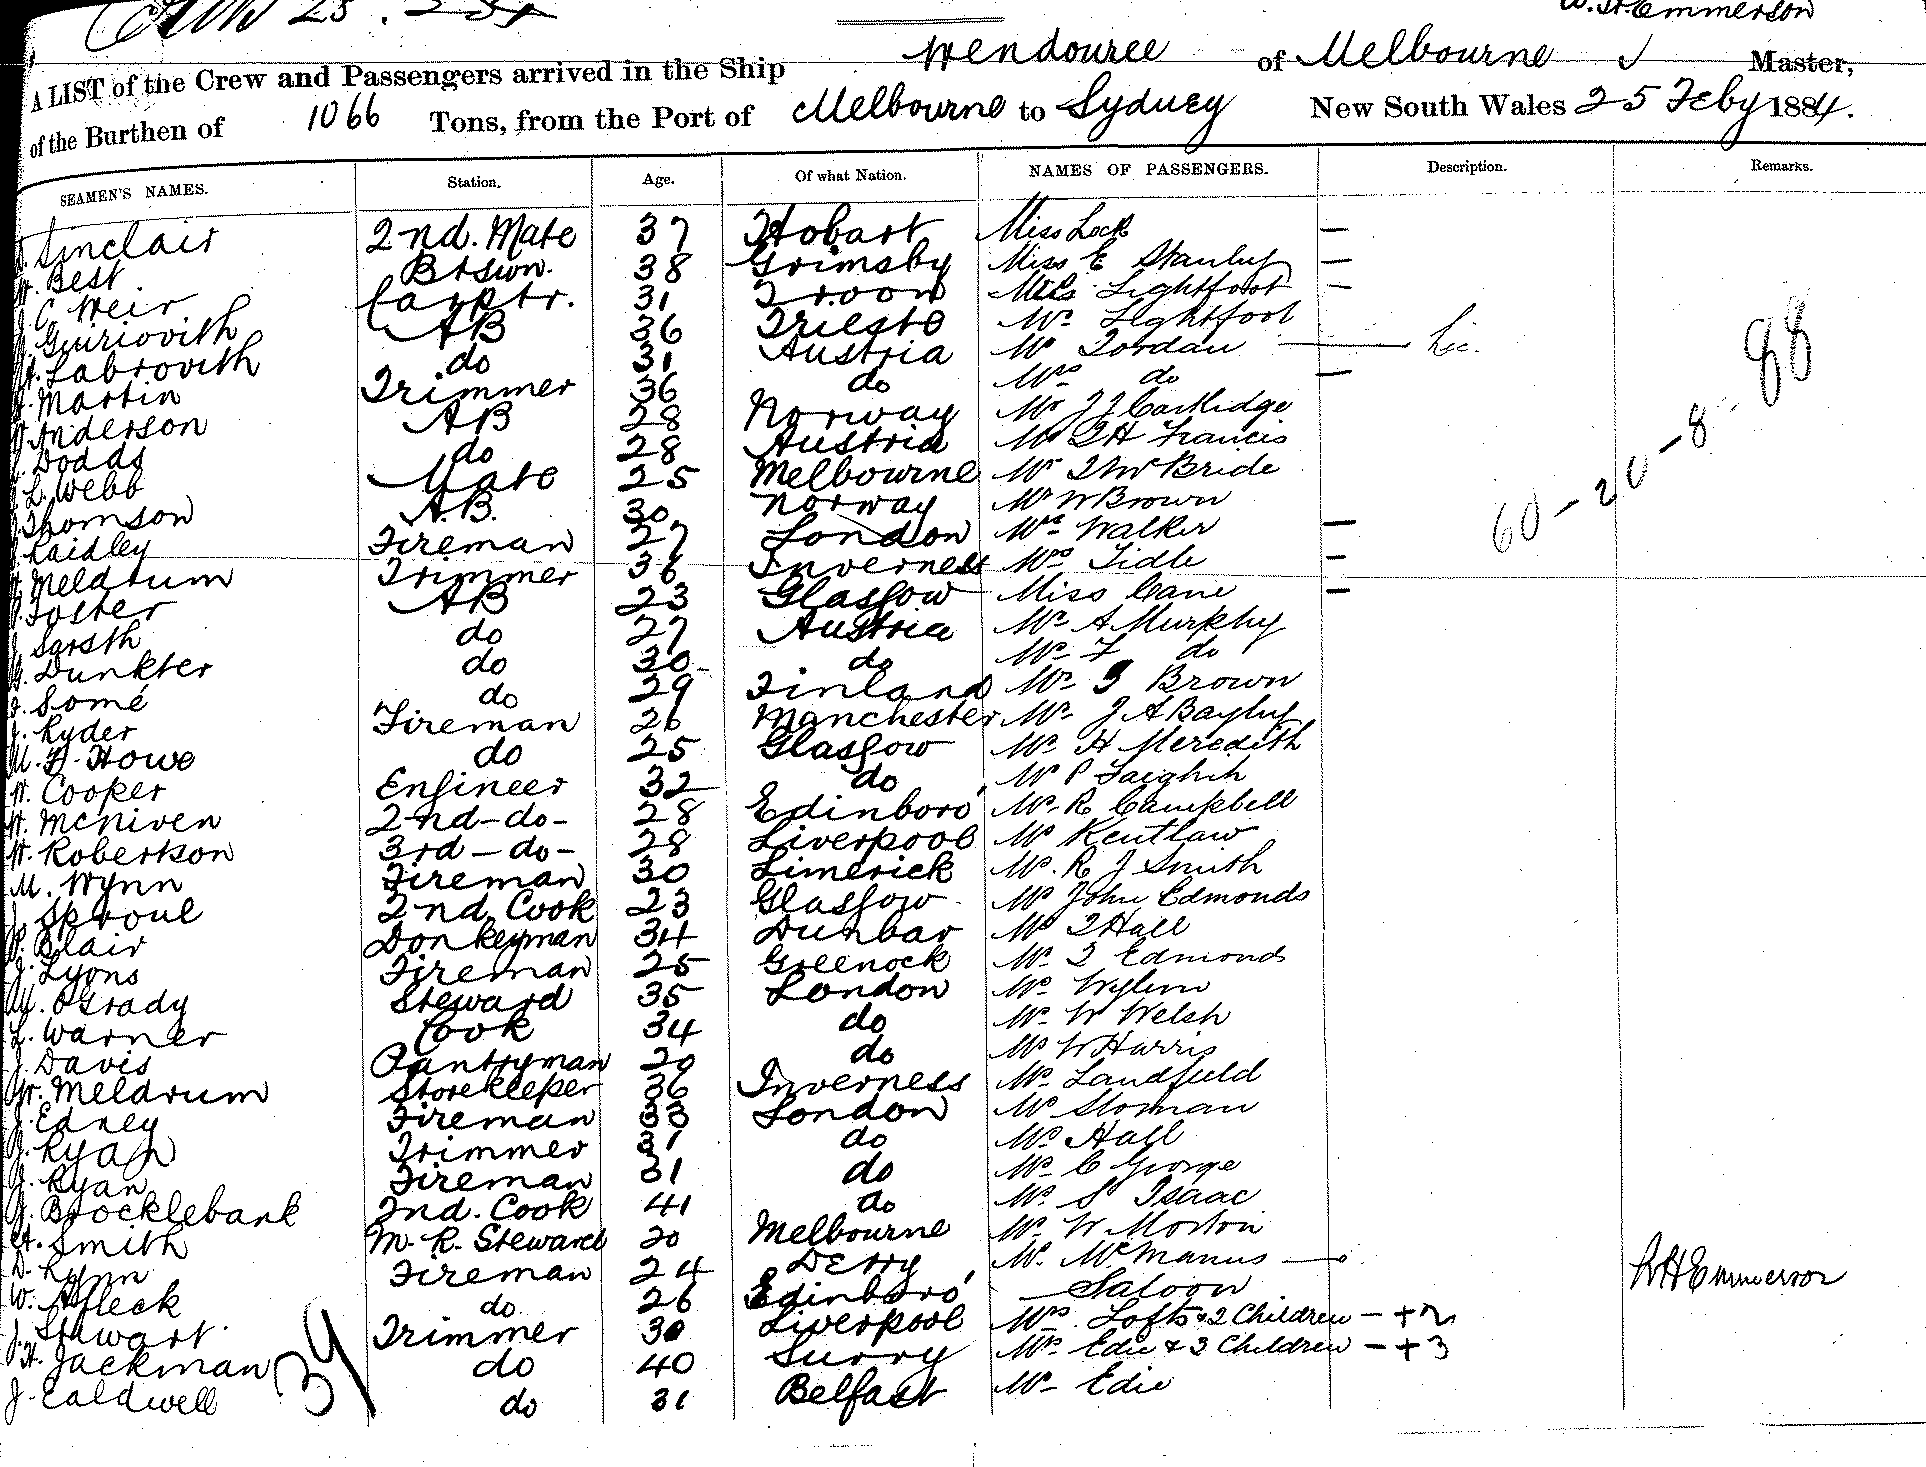 W. H. Emmerson
A LIST of the Crew and Passengers arrived in the Ship Wendouree of Melbourne Master,
of the Burthen of 1066 Tons, from the Port of Melbourne to Sydney New South Wales 25 Feby 1884.
SEAMEN'S NAMES. Station. Age. Of what Nation. NAMES OF PASSENGERS. Description. Remarks.
Sinclair 2nd. Mate 37 Hobart Miss Lock —
Best Btswn. 38 Grimsby Miss E Stanley —
C. Weir Carptr. 31 Troon Miss Lightfoot —
Guiriovith AB 36 Trieste Mr Lightfoot
Labrovith do 31 Austria Mr Jordan
Martin Trimmer 36 do Mrs do —
Anderson AB 28 Norway Mr J J Cartlidge
Dodds do 28 Austria Mr T H Francis
L. Webb Mate 25 Melbourne Mr T McBride
Thomson A.B. 30 Norway Mr W Brown
Laidley Fireman 27 London Mrs Walker —
Meldrum Trimmer 36 Inverness Mrs Tidle —
Foster AB 23 Glasgow Miss Cane —
Sarsth do 27 Austria Mr A Murphy
Dunkter do 30 do Mr F do
Somé do 29 Finland Mr J Brown
J. Ryder Fireman 26 Manchester Mr J A Bayley
M. H. Howe do 25 Glasgow Mr H Meredith
W. Cooper Engineer 32 do Mr P
W. McNiven 2nd -do- 28 Edinboro' Mr R Campbell
W. Robertson 3rd -do- 28 Liverpool Mr Kentlaw
M. Wynn Fireman 30 Limerick Mr. R J Smith
J. Sproul 2nd Cook 23 Glasgow Mr John Edmonds
Blair Donkeyman 34 Dunbar Mr T Hall
J. Lyons Fireman 25 Greenock Mr T Edmonds
M. O'Grady Steward 35 London Mr
L. Warner Cook 34 do Mr W Welsh
J. Davis Pantryman 29 do Mr W Harris
W. Meldrum Storekeeper 36 Inverness Mr Landfield
J. Edney Fireman 33 London Mr Sloman
J. Ryan Trimmer 37 do Mr Hall
J. Ryan Fireman 31 do Mr C George
J. Brocklebank 2nd. Cook 41 do Mr S Isaac
A. Smith M. R. Steward 20 Melbourne Mr W Morton
D. Fireman 24 Derry Mr McManus
W. Afleck do 26 Edinboro' Saloon
J. Stewart Trimmer 30 Liverpool Mrs. Lofts & 2 Children — +2
H. Jackman do 40 Surry Mrs Edie & 3 Children — +3
J. Caldwell do 31 Belfast Mr Edie
39
60 - 20 - 8 - 88
W H Emmerson